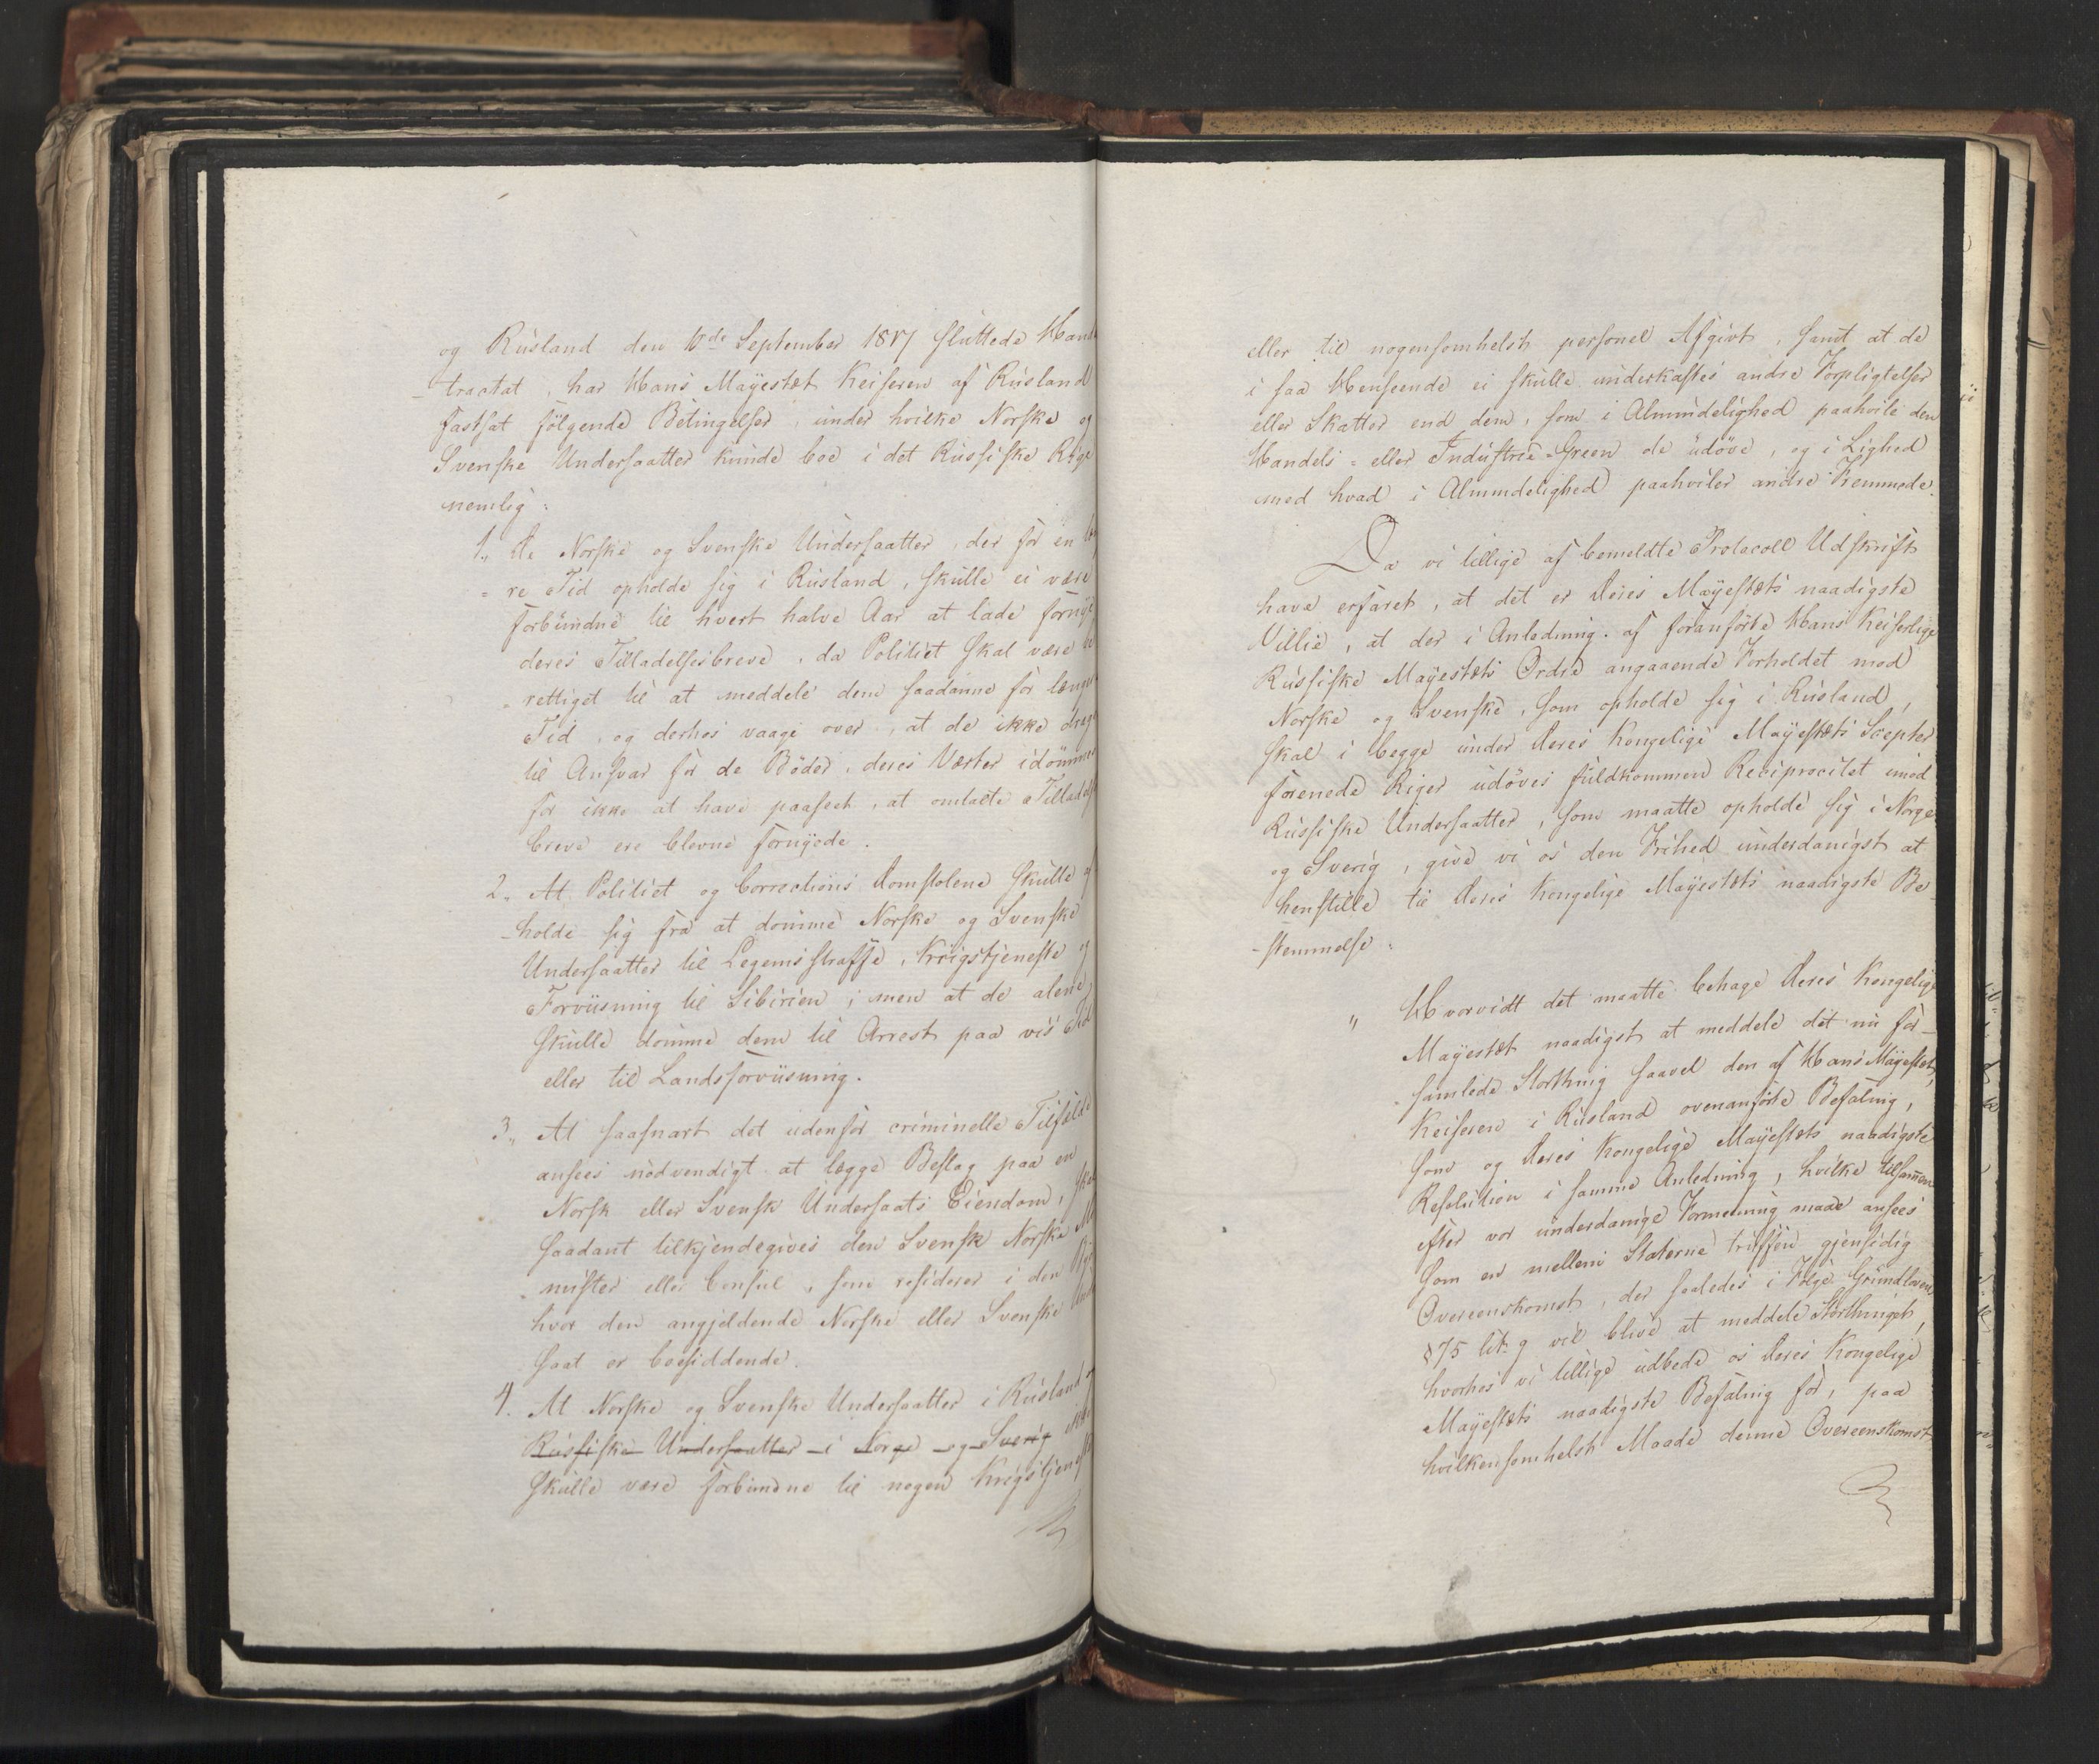 og Rusland den 10de September 1817 sluttede Hand
-tractat, har Hans Majestæt Keiseren af Rusland
fastsat følgende Betingelser, under hvilke Norske og
Svenske Undersaatter kunde boe i det Russiske Rige
nemlig:
1., De Norske og Svenske Undersaatter, der for en
-re Tid opholde sig i Rusland, skulle ei være
forbundne til hvert halve Aar at lade forny
deres Tilladelsesbreve, da Politiet skal være be
-rettiget til at meddele dem saadanne for længe
Tid, og derhos vaage over, at de ikke drage
til Ansvar for de Böder, deres Værter idömmes
for ikke at have paaseet, at omtalte Tilladelse
breve ere blevne fornyede.
2., At Politiet og Corrections Domstolene skulle af
-holde sig fra at dömme Norske og Svenske
Undersaatter til Legems straffe, Krigstjeneste og
Forviisning til Sibirien; men at de alene
skulle dömme dem til Arrest paa vis Tid
eller til Landsforviisning.
3., At saasnart det udenfor criminelle Tilfælde
ansees nödvendigt at lægge Beslag paa en
Norsk eller Svensk Undersaats Eiendom, skal
saadant tilkjendegives den Svensk Norske Mi
-nister eller Consul, som residerer i den
hvor den angjeldende Norske eller Svenske Under
saat er boesiddende.
4. At Norske og Svenske Undersaatter i Rusland
Russiske Undersaatter i Norge og Sverig ikke
skulle være forbundne til nogen Krigstjeneste
eller til nogensomhelst personel Afgivt, samt at de
i saa Henseende ei skulle underkastes andre Forpligtelser
eller Skatter end dem, som i Almindelighed paahvile den
Handels- eller Industrie-Green de udöve, og i Lighed
med hvad i Almindelighed paahviler andre Fremmede.
Da vi tillige af bemeldte Protocoll Udskrift
have erfaret, at det er Deres Majestæts naadigste
Villie, at der i Anledning af foranförte Hans Keiserlige
Russiske Majestæts Ordre angaaende Forholdet med
Norske og Svenske, som opholde sig i Rusland,
skal i begge under Deres Kongelige Majestæts Scepter
forenede Riger udöves fuldkommen Reciprocitet imod
Russiske Undersaatter, som maatte opholde sig i Norge
og Sverig, give vi os den Frihed underdanigst at
henstille til Deres Kongelige Majestæts naadigste Be
-stemmelse:
" Hvorvidt det maatte behage Deres Kongelige
Majestæt naadigst at meddele det nu for-
-samlede Storthing saavel den af Hans Majestæt,
Keiseren i Rusland ovenanförte Befaling,
som og Deres Kongelige Majestæts naadigste
Resolution i samme Anledning, hvilke tilsammen
efter vor underdanige Formening maae ansees
som en mellem Staterne truffen gjensidig
Overeenskomst, der saaledes i Fölge Grundloven
§75 lit: g vil blive at meddele Storthinget,
hvorhos vi tillige udbede os Deres Kongelige
Majestæts naadigste Befaling for, paa
hvilkensomhelst Maade denne Overeenskomst